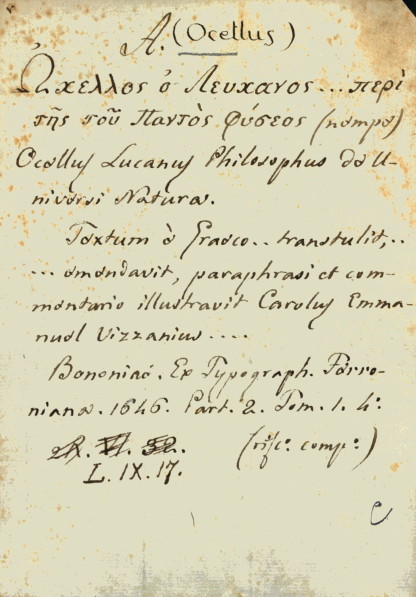 A. (Ocellus)
Ὠχελλος ὁ Λευχανος... περὶ
τῆς τοῦ Παντὸς Φύσεος (nompo)
Ocellus Lucanus Philosophus de U-
niversi Natura.
Textum è Graeco.. transtulit,..
... emendavit, paraphrasi et com-
mentario illustravit Carolus Emma-
nuel Vizzanius....
Bononiae. Ex Typograph. Ferro-
niana. 1646. Part. 2. Tom. 1. 4.º
(rifcº. compº.)
L. IX. 17.